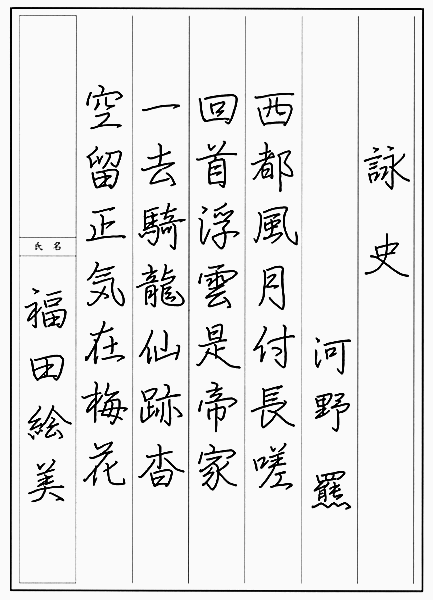 詠史
河野 羆
西都風月付長嗟
回首浮雲是帝家
一去騎龍仙跡杳
空留正気在梅花
氏名
福田絵美